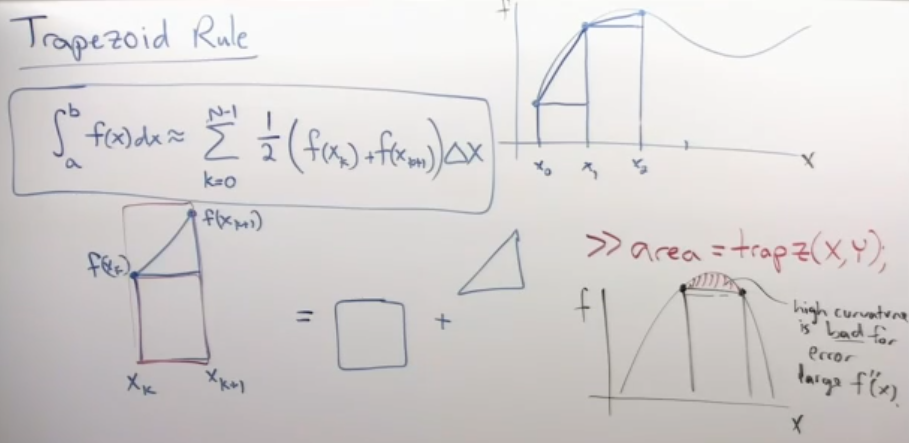 Trapezoid Rule
∫_a^b f(x)dx ≈ Σ_{k=0}^{N-1} 1/2 (f(x_k) + f(x_{k+1})) Δx
f
x_0 x_1 x_2 x
f(x_{k+1})
f(x_k)
= +
x_k x_{k+1}
>> area = trapz(X,Y);
f
high curvature
is bad for
error
large f''(x).
x